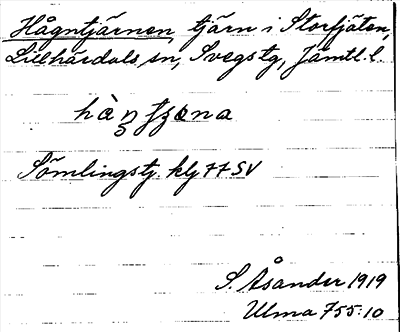 Hågntjärnen, tjärn i Storfjäten,
Lillhärdals sn, Svegs tg, Jämtl. l.
Sömlingstj. klj 77 SV
S. Åsander 1919
Ulma 755:10